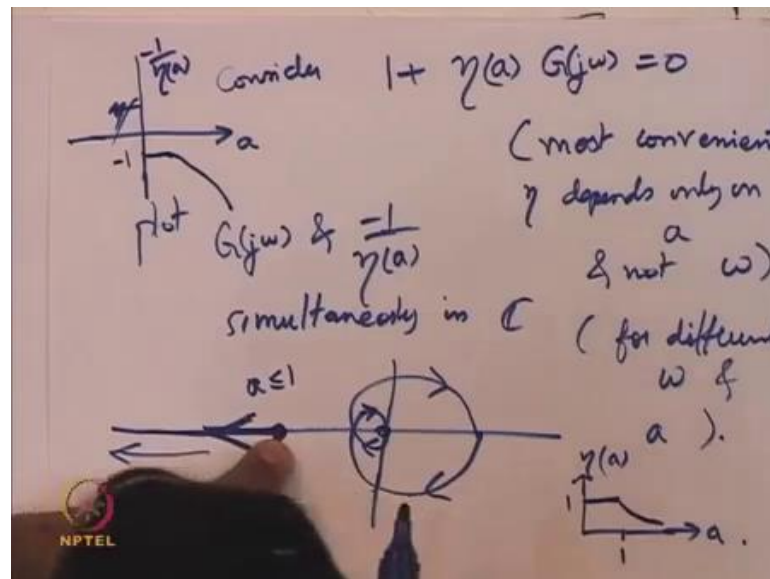 -1/η(a)
Consider 1 + η(a) G(jω) = 0
a
-1
(most convenien
η depends only on
a
& not ω)
plot G(jω) & -1/η(a)
simultaneosly in ℂ
(for differen
ω &
a ).
a ≤ 1
η(a)
1
1
a .
NPTEL